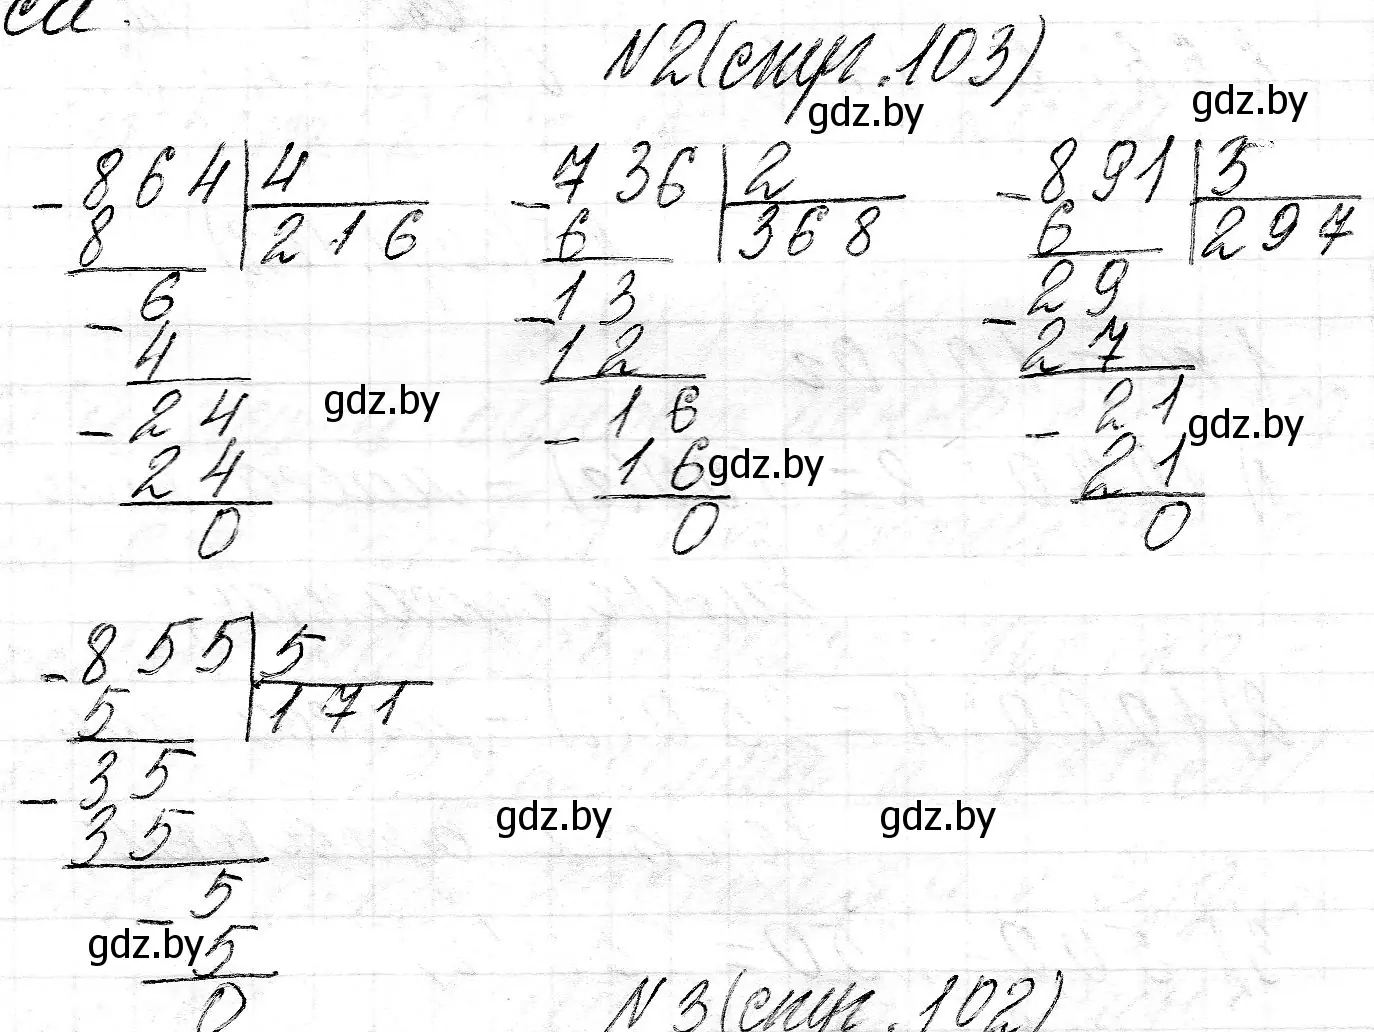 са.
N2(стр.103)
gdz.by
gdz.by
- 864 | 4
8 | 216
- 6
4
- 24
24
0
- 736 | 2
6 | 368
- 13
12
- 16
16
0
- 891 | 3
6 | 297
- 29
27
- 21
21
0
gdz.by
gdz.by
gdz.by
- 855 | 5
5 | 171
- 35
35
- 5
5
0
gdz.by
gdz.by
gdz.by
N 3(стр.102)